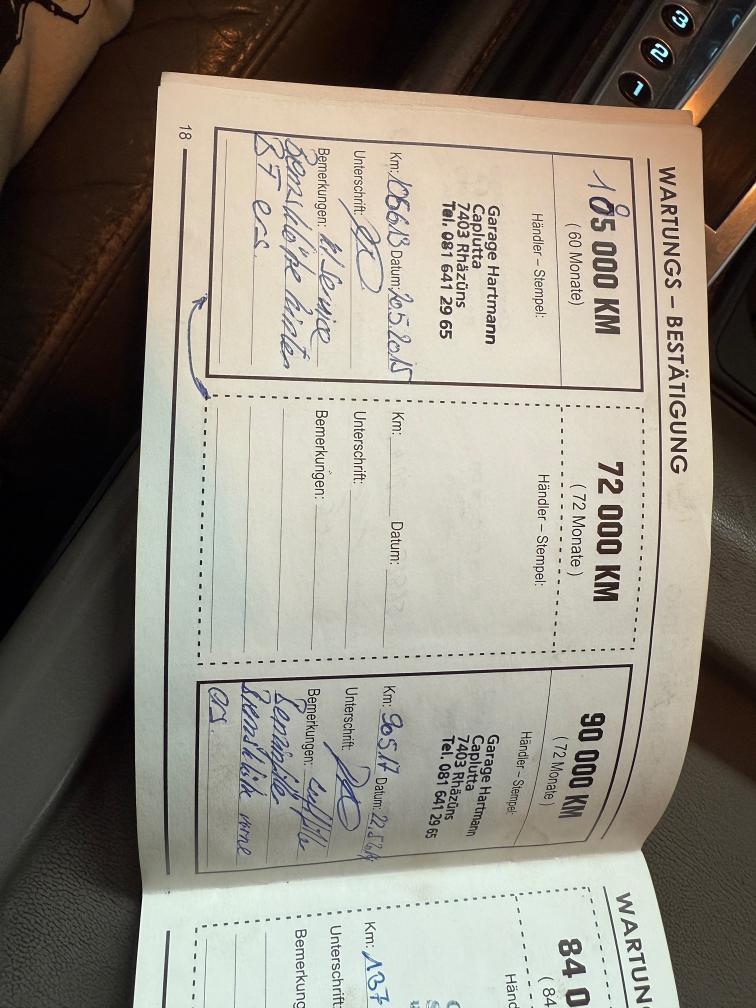 3
2
1
18
WARTUNGS – BESTÄTIGUNG
105 000 KM
( 60 Monate)
Händler – Stempel:
Garage Hartmann
Caplutta
7403 Rhäzüns
Tel. 081 641 29 65
Km: 105613 Datum: 20.5.2015
Unterschrift:
Bemerkungen: Service
Bremsklötze hinten
BF ers.
72 000 KM
( 72 Monate )
Händler – Stempel:
Km: Datum:
Unterschrift:
Bemerkungen:
90 000 KM
( 72 Monate )
Händler – Stempel:
Garage Hartmann
Caplutta
7403 Rhäzüns
Tel. 081 641 29 65
Km: 90517 Datum:
Unterschrift:
Bemerkungen: Luftfilter
Bremsklötze vorne
ers.
WARTUN
84 0
( 84
Händ
Km: 137
Unterschrift:
Bemerkung